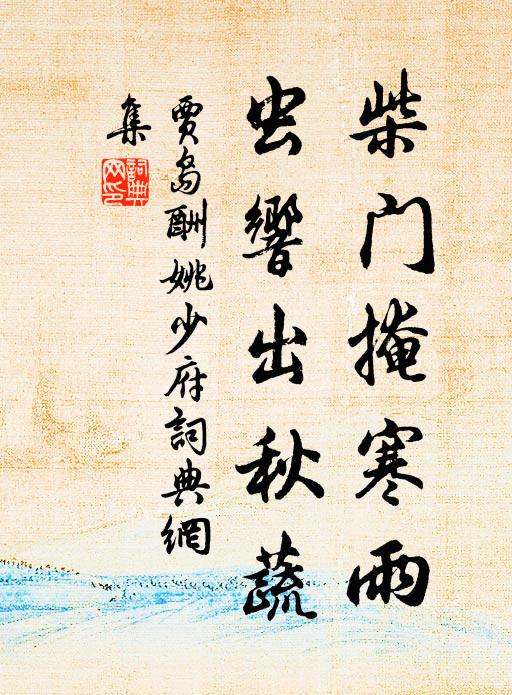 柴门掩寒雨
虫響出秋蔬
賈島酬姚少府詞典網
集
詞典网印